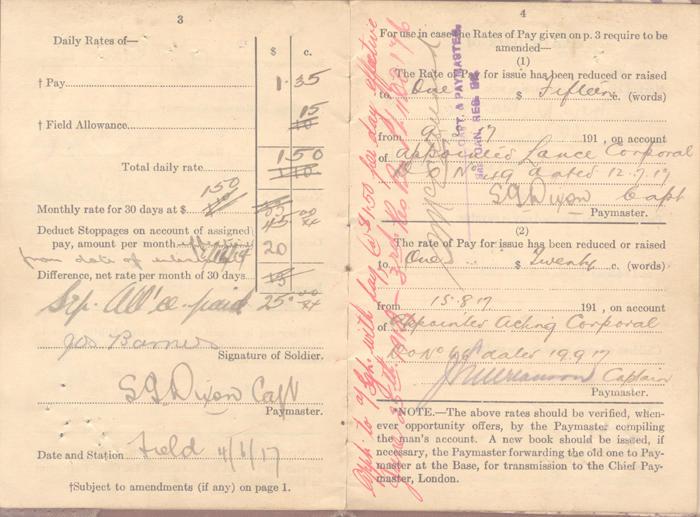 3
Daily Rates of—
$ c.
† Pay 1 35
15
† Field Allowance 10
Total daily rate 1 50
1 10
150
Monthly rate for 30 days at $
45 00
Deduct Stoppages on account of assigned
pay, amount per month 20
from date of
Difference, net rate per month of 30 days 15
Sep. All'ce paid 25 00
Jos Barnes
Signature of Soldier.
S G Dixon Capt
Paymaster.
Date and Station Field 4/6/17
†Subject to amendments (if any) on page 1.
4
For use in case the Rates of Pay given on p. 3 require to be
amended—
(1)
The Rate of Pay for issue has been reduced or raised
to One $ Fifteen c. (words)
from 9 7 191 , on account
of Appointed Lance Corporal
dated 12.7.17
S G Dixon Capt
Paymaster.
(2)
The rate of Pay for issue has been reduced or raised
to One $ Twenty c. (words)
from 15.8.17 191 , on account
of Appointed Acting Corporal
DO No dated 19 9 17
Captain
Paymaster.
*NOTE.—The above rates should be verified, when-
ever opportunity offers, by the Paymaster compiling
the man's account. A new book should be issued, if
necessary, the Paymaster forwarding the old one to Pay-
master at the Base, for transmission to the Chief Pay-
master, London.
with pay @ $1.50 per day effective
CAPT. & PAYMASTER,